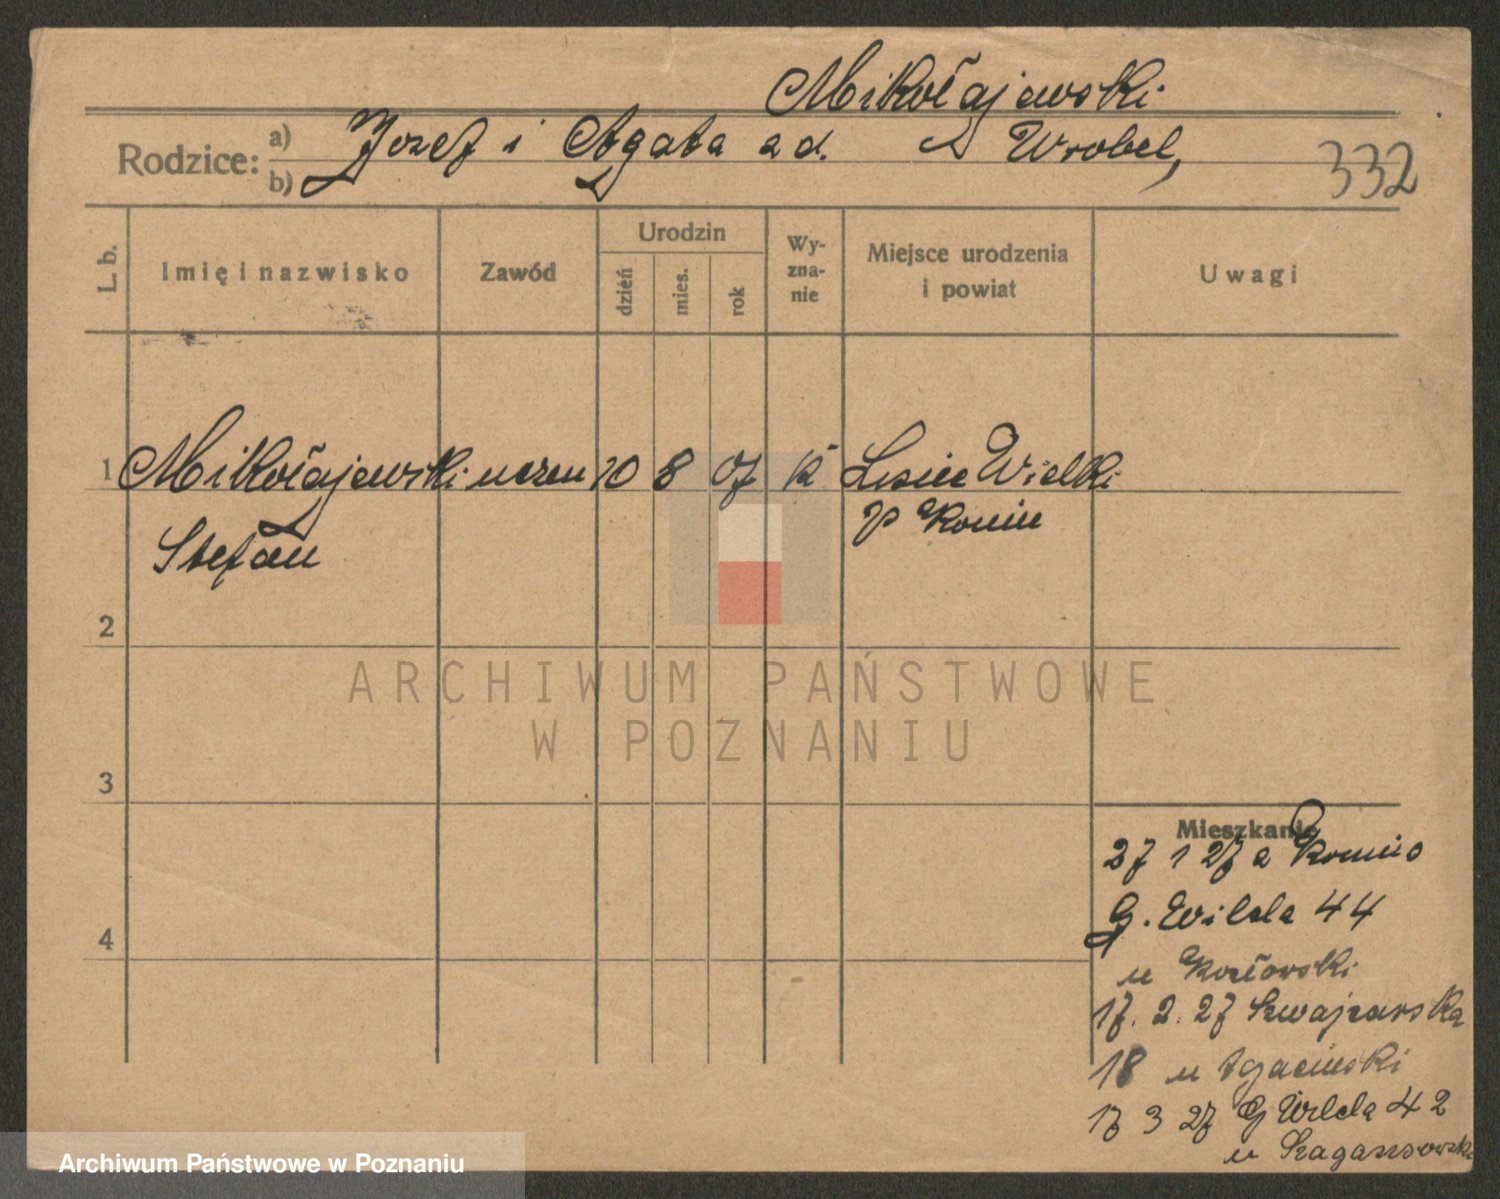 Mikołajewski
Rodzice: a) b) Jozef i Agata z d. Wrobel, 332
L. b.
Imię i nazwisko
Zawód
Urodzin
dzień
mies.
rok
Wy-
zna-
nie
Miejsce urodzenia
i powiat
Uwagi
1 Mikołajewski uczen 10 8 07 k Lisiec Wielki
Stefan p Konin
2
3
4
Mieszkanie
27 1 27 z Konina
G. Wilda 44
u Kozłowski
17. 2. 27 Szwajcarska
18 u
17 3 27 G Wilda 42
u
ARCHIWUM PAŃSTWOWE
W POZNANIU
Archiwum Państwowe w Poznaniu